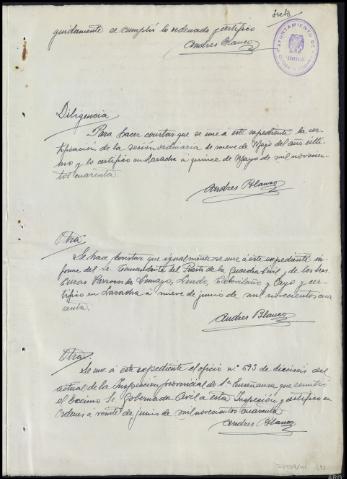 siete
guidamente se cumplió lo ordenado y certifico
Andres Blanco
AYUNTAMIENTO DE
Diligencia
Para hacer constar que se une a este expediente la cer-
tificación de la sesión ordinaria de nueve de Mayo del año últi-
mo y lo certifico en Laradra a quince de Mayo de mil novecien-
tos cuarenta
Andres Blanco
Otra
Se hace constar que igualmente se une a este expediente in-
forme del Sr. Comandante del Puesto de la Guardia Civil y de los tres
curas Parrocos de
certifico en Laradra a nueve de junio de mil novecientos cua-
renta
Andres Blanco
Otra
Se une a este expediente el oficio nº 693 de dieciseis del
actual de la Inspección provincial de 1ª Enseñanza que remitió
el Excmo Sr Gobernador Civil a esta Inspección y certifico en
a veinte de junio de mil novecientos cuarenta
Andres Blanco